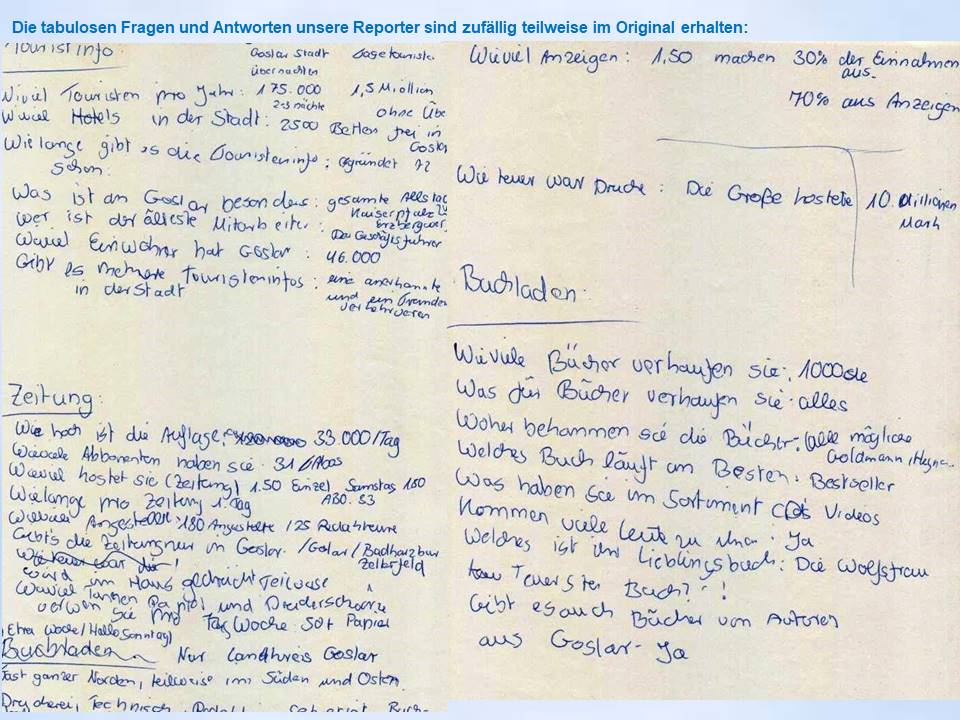 Die tabulosen Fragen und Antworten unsere Reporter sind zufällig teilweise im Original erhalten:
Tourist Info
Goslar Stadt Tagestouriste
übernachten
Wiviel Touristen pro Jahr: 175.000 1,5 Miollion
2-3 nächte ohne Übe
Wiviel Hotels in der Stadt: 2500 Betten frei in
Goslar
Wielange gibt es die Touristeninfo: gegründet
schon:
Was ist an Goslar besonders: gesamte
Kaiserpfalz
wer ist der älteste Mitarbeiter: Erzbergwer
Der Geschäftsführer
Wieviel Einwohner hat Goslar: 46.000
Gibt es mehrere Touristeninfos: eine anerkannte
in der Stadt und ein Fremden
verkehrveren
Zeitung:
Wie hoch ist die Auflage: 33.000/Tag
Wieviele Abbonenten haben sie: 31
Wieviel kostet sie (Zeitung) 1.50 Einzel Samstag 180
ABO.
Wielange pro Zeitung 1 Tag
Wieviel Angestellte: 180 Angestellte / 25 Redakteure
Gibts die Zeitung nur in Goslar. / Goslar / Badharzbur
Zellerfeld
wird im Haus gedruckt Teilweise
Wieviel Tonnen Papier und Druckerschwärze
verwen sie pro Tag Woche: 50t Papier
(Etra Woche/Hallo Sonntag)
Buchladen Nur Landkreis Goslar
Fast ganzer Norden, teilweise im Süden und Osten
Druckerei, Technisch
Wieviel Anzeigen: 1,50 machen 30% der Einnahmen
aus.
70% aus Anzeigen
Wie teuer war Drucke: Die Große kostete 10. Millionen
Mark
Buchladen:
Wieviele Bücher verkaufen sie: 1000de
Was für Bücher verkaufen sie: alles
Woher bekammen sie die Bücher: (alle mögliche
Goldmann,
Welches Buch läuft am Besten: Bestseller
Was haben sie im Sortument CDs Videos
Kommen viele Leute zu Ihnen: Ja
Welches ist ihr Lieblingsbuch: Die Wolfsfrau
Teuerster Buch? - !
Gibt es auch Bücher von Autoren
aus Goslar - Ja